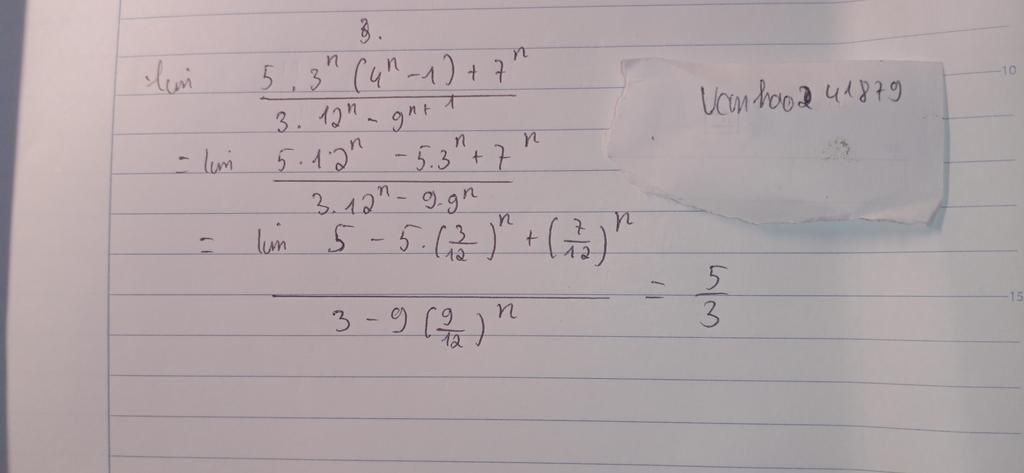 3.
lim 5 . 3^n (4^n - 1) + 7^n / 3. 12^n - 9^{n+1}
= lim 5 . 12^n - 5.3^n + 7^n / 3.12^n - 9.9^n
= lim 5 - 5.(3/12)^n + (7/12)^n / 3 - 9 (9/12)^n = 5/3
Vanhao2 41879
10
15